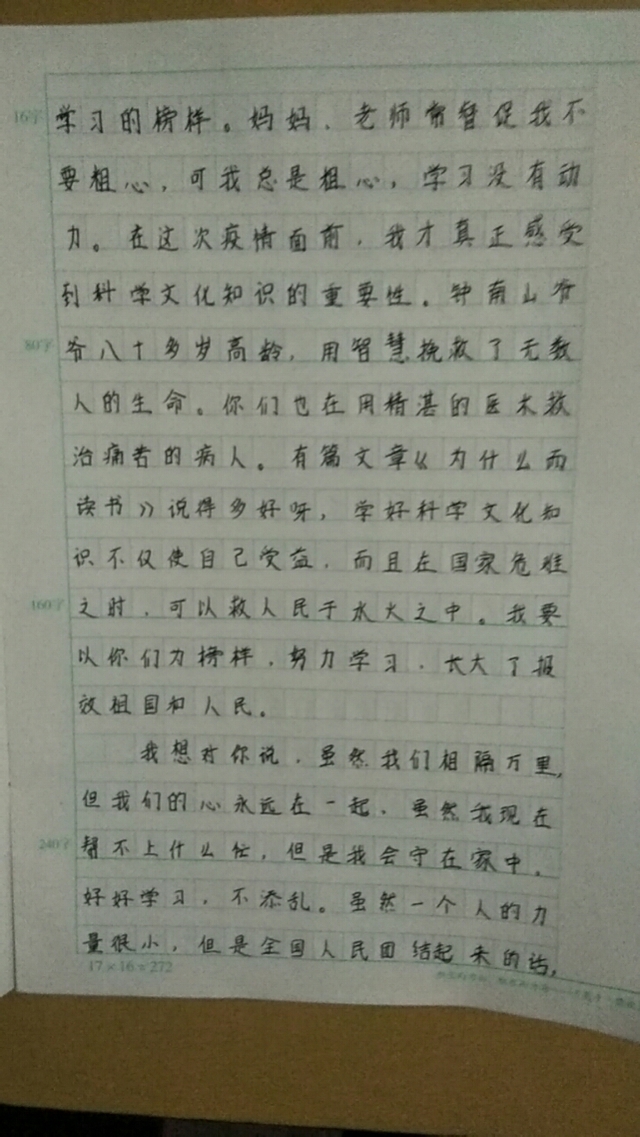 16字
学习的榜样。妈妈、老师常督促我不
要粗心，可我总是粗心，学习没有动
力。在这次疫情面前，我才真正感受
到科学文化知识的重要性。钟南山爷
80字
爷八十多岁高龄，用智慧挽救了无数
人的生命。你们也在用精湛的医术救
治痛苦的病人。有篇文章《为什么而
读书》说得多好呀，学好科学文化知
识不仅使自己受益，而且在国家危难
160字
之时，可以救人民于水火之中。我要
以你们为榜样，努力学习，长大了报
效祖国和人民。
我想对你说，虽然我们相隔万里，
但我们的心永远在一起，虽然我现在
240字
帮不上什么忙，但是我会守在家中，
好好学习，不添乱。虽然一个人的力
量很小，但是全国人民团结起来的话，
17×16=272